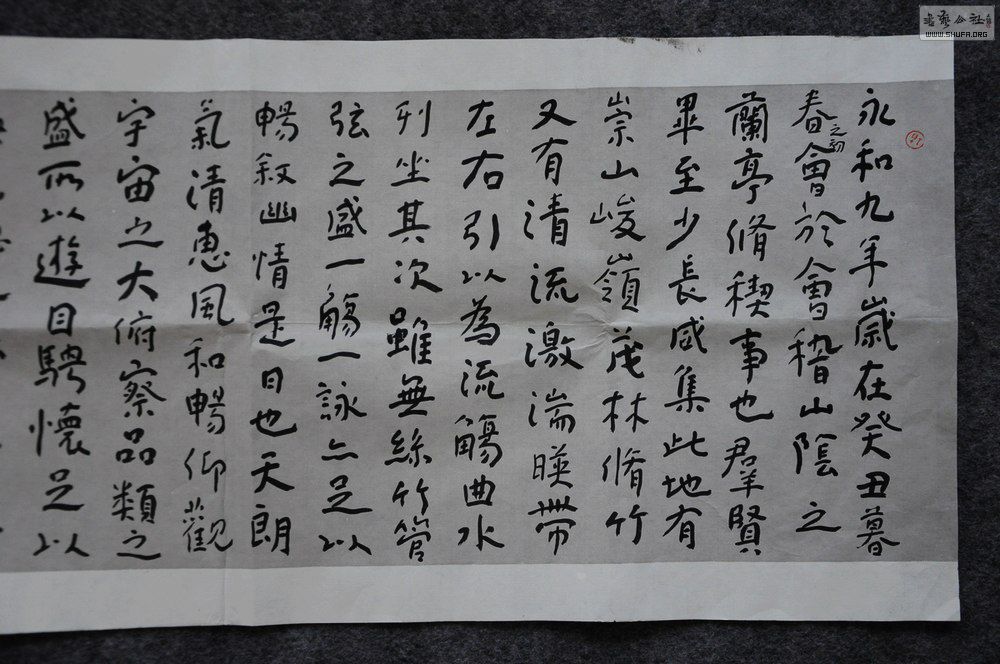 永和九年歲在癸丑暮
春之初會於會稽山陰之
蘭亭脩稧事也群賢
畢至少長咸集此地有
崇山峻嶺茂林脩竹
又有清流激湍暎帶
左右引以為流觴曲水
列坐其次雖無絲竹管
弦之盛一觴一詠亦足以
暢叙幽情是日也天朗
氣清惠風和暢仰觀
宇宙之大俯察品類之
盛所以遊目騁懷足以
書藝公社
WWW.SHUFA.ORG